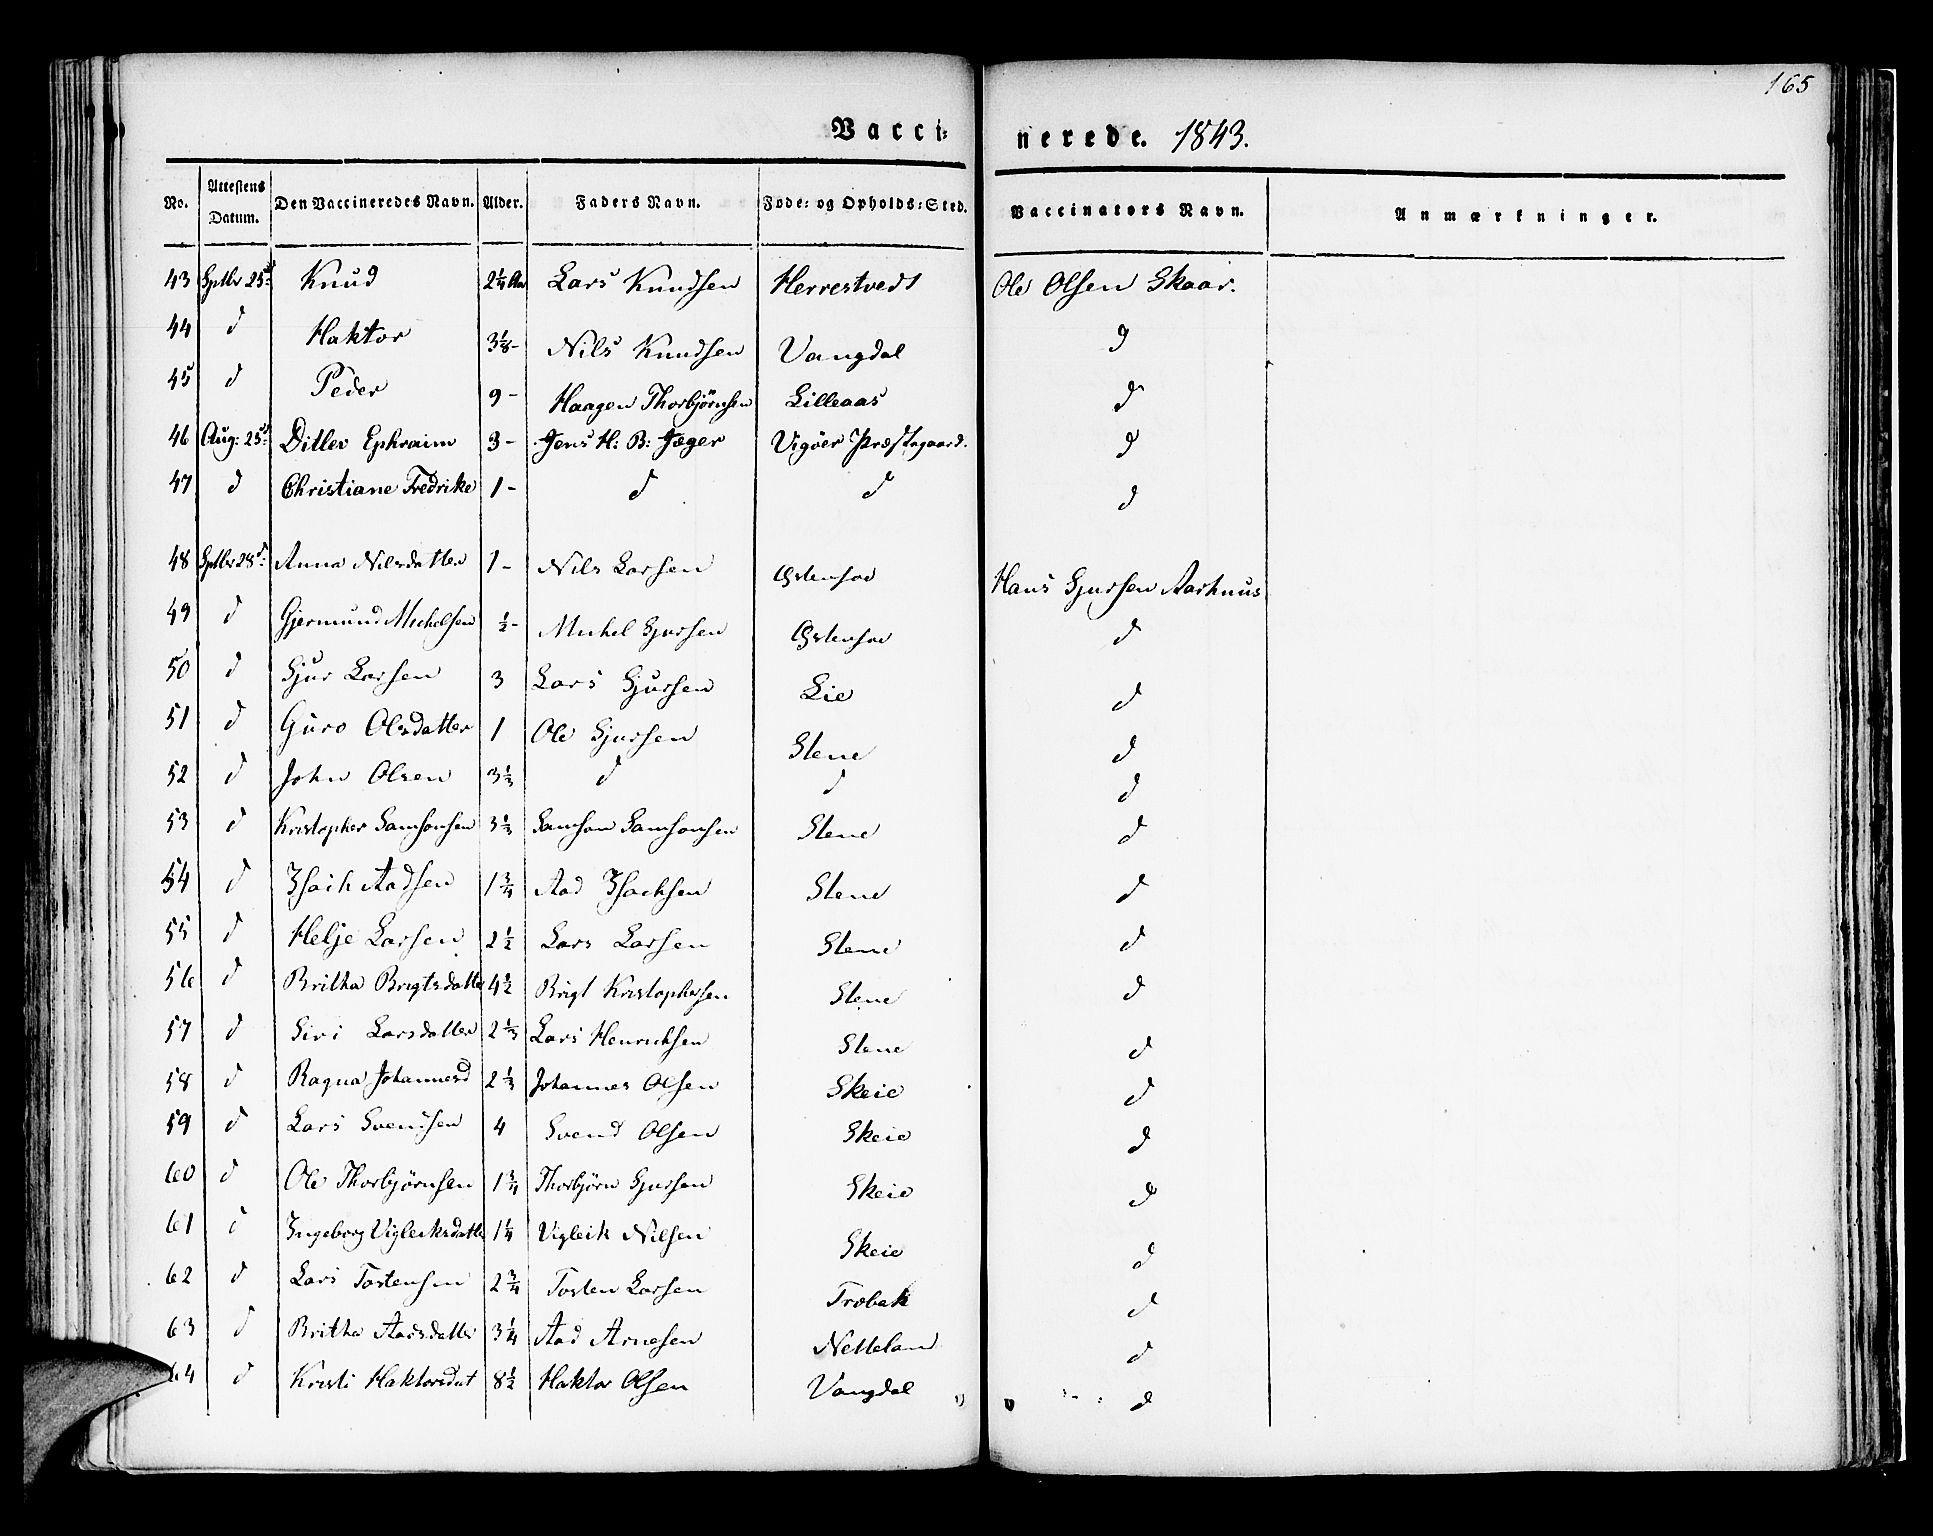 165
Vacci- nerede. 1843.
No. | Attestens Datum. | Den Vaccineredes Navn. | Alder. | Faders Navn. | Føde- og Opholds-Sted. | Vaccinators Navn. | Anmærkninger.
43 | Sptbr 25d | Knud | 2¼ Aar | Lars Knudsen | Herrestvedt | Ole Olsen Skaar.
44 | d | Haktor | 3⅛ - | Nils Knudsen | Vangdal | d
45 | d | Peder | 9 - | Haagen Thorbjörnsen | Lilleaas | d
46 | Aug: 25d | Ditlev Ephraim | 3 - | Jens H: B: Jæger | Vigöer Præstegaard. | d
47 | d | Christiane Fredrike | 1 - | d | d | d
48 | Sptbr 28d | Anna Nilsdatter | 1 - | Nils Larsen | Östensöe | Hans Sjursen Aarhuus
49 | d | Gjermund Michelsen | ½ - | Michel Sjursen | Östensöe | d
50 | d | Sjur Larsen | 3 | Lars Sjursen | Lie | d
51 | d | Guro Olsdatter | 1 | Ole Sjursen | Stene | d
52 | d | John Olsen | 3⅓ | d | d | d
53 | d | Kristopher Samsonsen | 3⅓ | Samson Samsonsen | Stene | d
54 | d | Isach Aadsen | 1¾ | Aad Isachsen | Stene | d
55 | d | Helje Larsen | 2½ | Lars Larsen | Stene | d
56 | d | Britha Brigtsdatter | 4½ | Brigt Kristophersen | Stene | d
57 | d | Siri Larsdatter | 2⅓ | Lars Henrichsen | Stene | d
58 | d | Ragna Johannesd | 2⅓ | Johannes Olsen | Skeie | d
59 | d | Lars Svendsen | 4 | Svend Olsen | Skeie | d
60 | d | Ole Thorbjörnsen | 1¾ | Thorbjörn Sjursen | Skeie | d
61 | d | Ingeborg Vigleiksdatter | 1¼ | Vigleik Nilsen | Skeie | d
62 | d | Lars Tostensen | 2¾ | Tosten Larsen | Trobak | d
63 | d | Britha Aadsdatter | 3¼ | Aad Arnesen | Netteland | d
64 | d | Kristi Haktorsdat | 8½ | Haktor Olsen | Vangdal | d